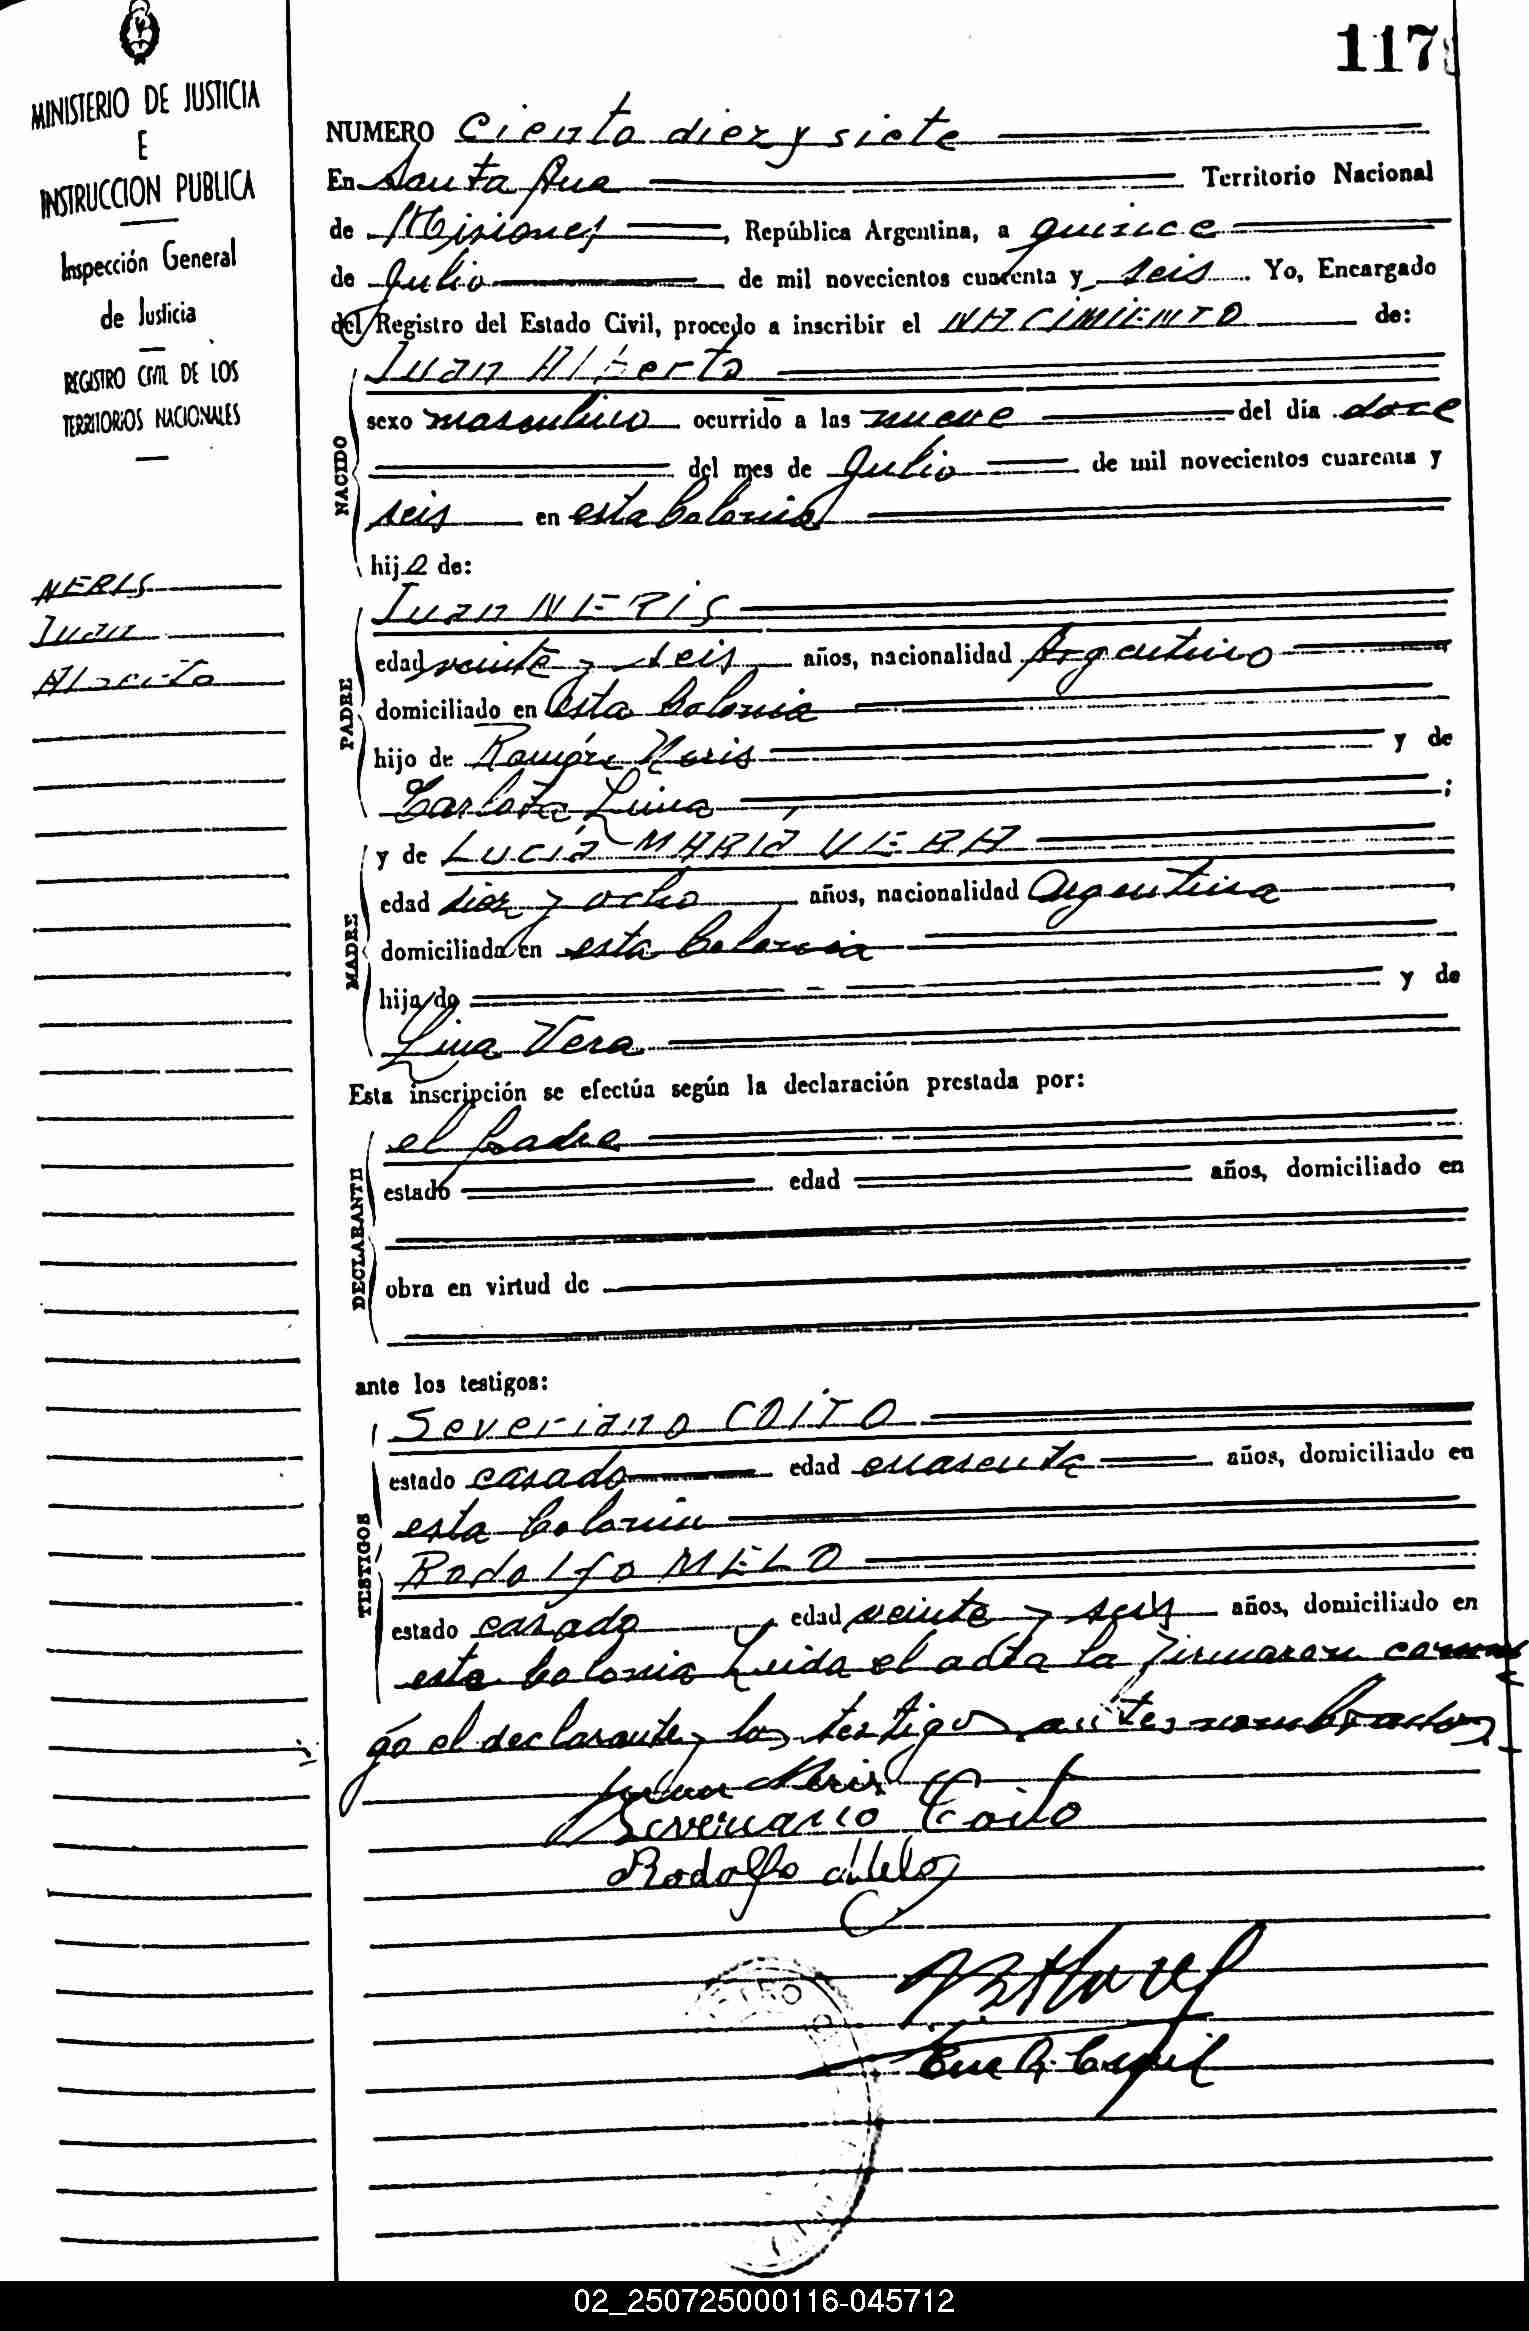 117
MINISTERIO DE JUSTICIA
E
INSTRUCCION PUBLICA
Inspección General
de Justicia
REGISTRO CIVIL DE LOS
TERRITORIOS NACIONALES
NERIS
Juan
Alberto
NUMERO Ciento diez y siete
En Santa Ana Territorio Nacional
de Misiones, República Argentina, a quince
de Julio de mil novecientos cuarenta y seis. Yo, Encargado
del Registro del Estado Civil, procedo a inscribir el NACIMIENTO de:
NACIDO
Juan Alberto
sexo masculino ocurrido a las nueve del día doce
del mes de Julio de mil novecientos cuarenta y
seis en esta Colonia
hijo de:
PADRE
Juan NERIS
edad veinte y seis años, nacionalidad Argentino
domiciliado en esta Colonia
hijo de Ramón Neris y de
Carlota Lima ;
MADRE
y de Lucía MARIA VERA
edad diez y ocho años, nacionalidad Argentina
domiciliada en esta Colonia
hija de y de
Lina Vera
Esta inscripción se efectúa según la declaración prestada por:
DECLARANTE
el padre
estado edad años, domiciliado en
obra en virtud de
ante los testigos:
TESTIGOS
Severiano COITO
estado casado edad cuarenta años, domiciliado en
esta Colonia
Rodolfo MELO
estado casado edad veinte y seis años, domiciliado en
esta Colonia Leida el acta la firmaron conmi
go el declarante y los testigos antes nombrados
Juan Neris
Severiano Coito
Rodolfo Melo
02_250725000116-045712